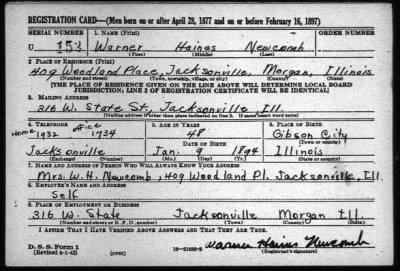 REGISTRATION CARD—(Men born on or after April 28, 1877 and on or before February 16, 1897)
SERIAL NUMBER 1. NAME (Print) ORDER NUMBER
U 153 Warner Haines Newcomb
(First) (Middle) (Last)
2. PLACE OF RESIDENCE (Print)
409 Woodland Place, Jacksonville, Morgan, Illinois
(Number and street) (Town, township, village, or city) (County) (State)
[THE PLACE OF RESIDENCE GIVEN ON THE LINE ABOVE WILL DETERMINE LOCAL BOARD
JURISDICTION; LINE 2 OF REGISTRATION CERTIFICATE WILL BE IDENTICAL]
3. MAILING ADDRESS
316 W. State St., Jacksonville Ill.
[Mailing address if other than place indicated on line 2. If same insert word same]
4. TELEPHONE 5. AGE IN YEARS 6. PLACE OF BIRTH
Home 1932 office 1734 48 Gibson City
DATE OF BIRTH (Town or county)
Jacksonville Jan. 9 1894 Illinois
(Exchange) (Number) (Mo.) (Day) (Yr.) (State or country)
7. NAME AND ADDRESS OF PERSON WHO WILL ALWAYS KNOW YOUR ADDRESS
Mrs. W. H. Newcomb, 409 Woodland Pl. Jacksonville, Ill.
8. EMPLOYER'S NAME AND ADDRESS
Self
9. PLACE OF EMPLOYMENT OR BUSINESS
316 W. State Jacksonville Morgan Ill.
(Number and street or R. F. D. number) (Town) (County) (State)
I AFFIRM THAT I HAVE VERIFIED ABOVE ANSWERS AND THAT THEY ARE TRUE.
D. S. S. Form 1
(Revised 4-1-42) (over) 16—21630-2 Warner Haines Newcomb
(Registrant's signature)